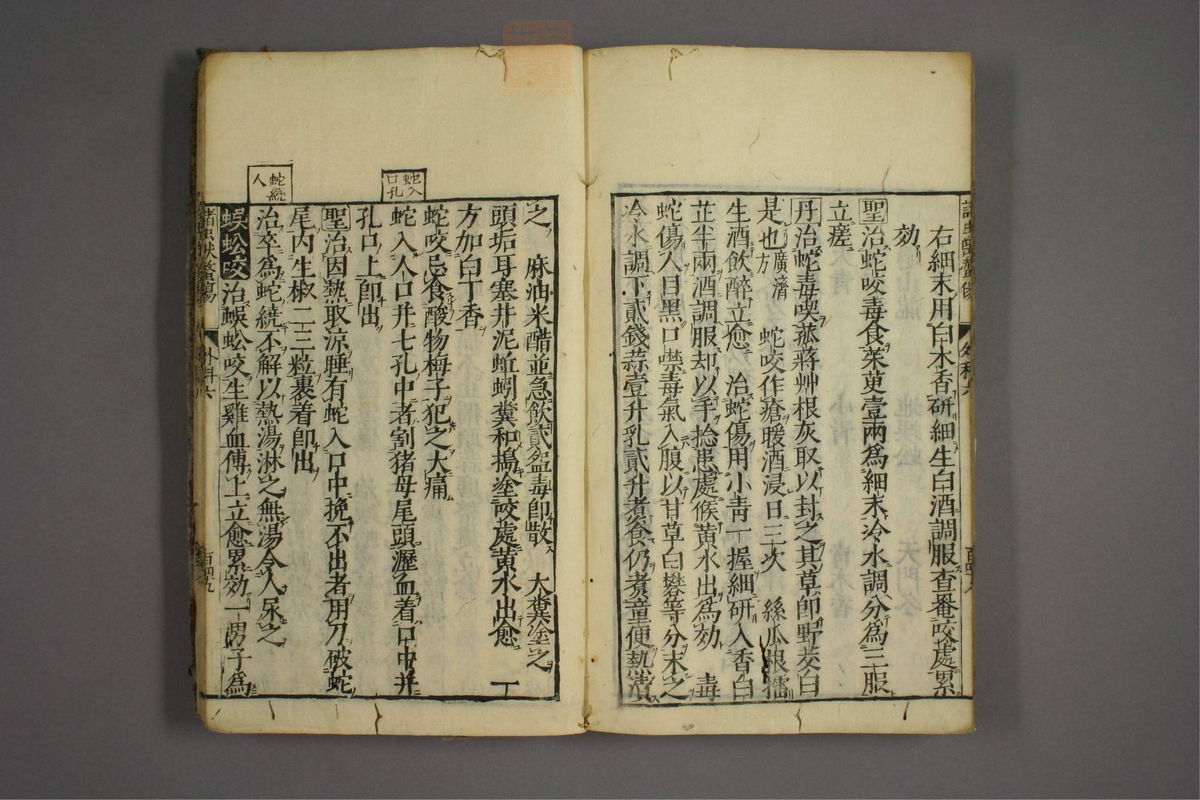 右細末用白木香研細生白酒調服杳番咬處累
効
聖治蛇咬毒食茱萸壹兩為細末冷水調分為三服
立瘥
丹治蛇毒喫菰蔣艸根灰取以封之其草即野茭白
是也廣濟方 蛇咬作瘡暖酒浸日三次 絲瓜根擂
生酒飲醉立愈 治蛇傷用小青一握細研入香白
芷半兩酒調服却以手捻患處候黃水出為効 毒
蛇傷人目黑口噤毒氣入腹以甘草白礬等分末之
冷水調下貳錢蒜壹升乳貳升煮食仍煮童便熱漬
之 麻油米醋並急飲貳盌毒即散 大糞塗之
頭垢耳塞井泥蚯蚓糞和搗塗咬處黃水出愈 一
方加白丁香
蛇咬忌食酸物梅子犯之大痛
蛇入口孔
蛇入人口并七孔中者割猪母尾頭瀝血着口中并
孔口上即出
聖治因熱取涼睡有蛇入口中挽不出者用刀破蛇
尾內生椒二三粒裹着即出
蛇繞人
治卒為蛇繞不解以熱湯淋之無湯令人尿之
蜈蚣咬治蜈蚣咬生雞血傅上立愈累効一男子為
外科六
百四九